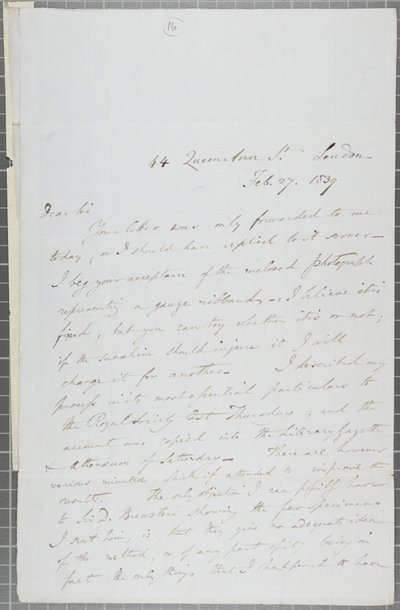 16
44 Queen Ann St. London
Feb. 27. 1839
Dear Sir
Your letter was only forwarded to me
today, or I should have replied to it sooner—
I beg your acceptance of the inclosed photograph
representing a gauze ribband—. I believe it is
fixed, but you can try whether it is or not;
if the sunshine should injure it I will
change it for another— I described my
process with most essential particulars to
the Royal Society last Thursday; and the
account was copied into the Literary Gazette
& Athenaeum of Saturday— There are however
various minutiae, which if attended to improve the
result. The only objection I can possibly have
to Sir D. Brewster's showing the few specimens
I sent him, is, that they give no adequate idea
of the method, or of any part of it, being in
fact the only things that I happened to have